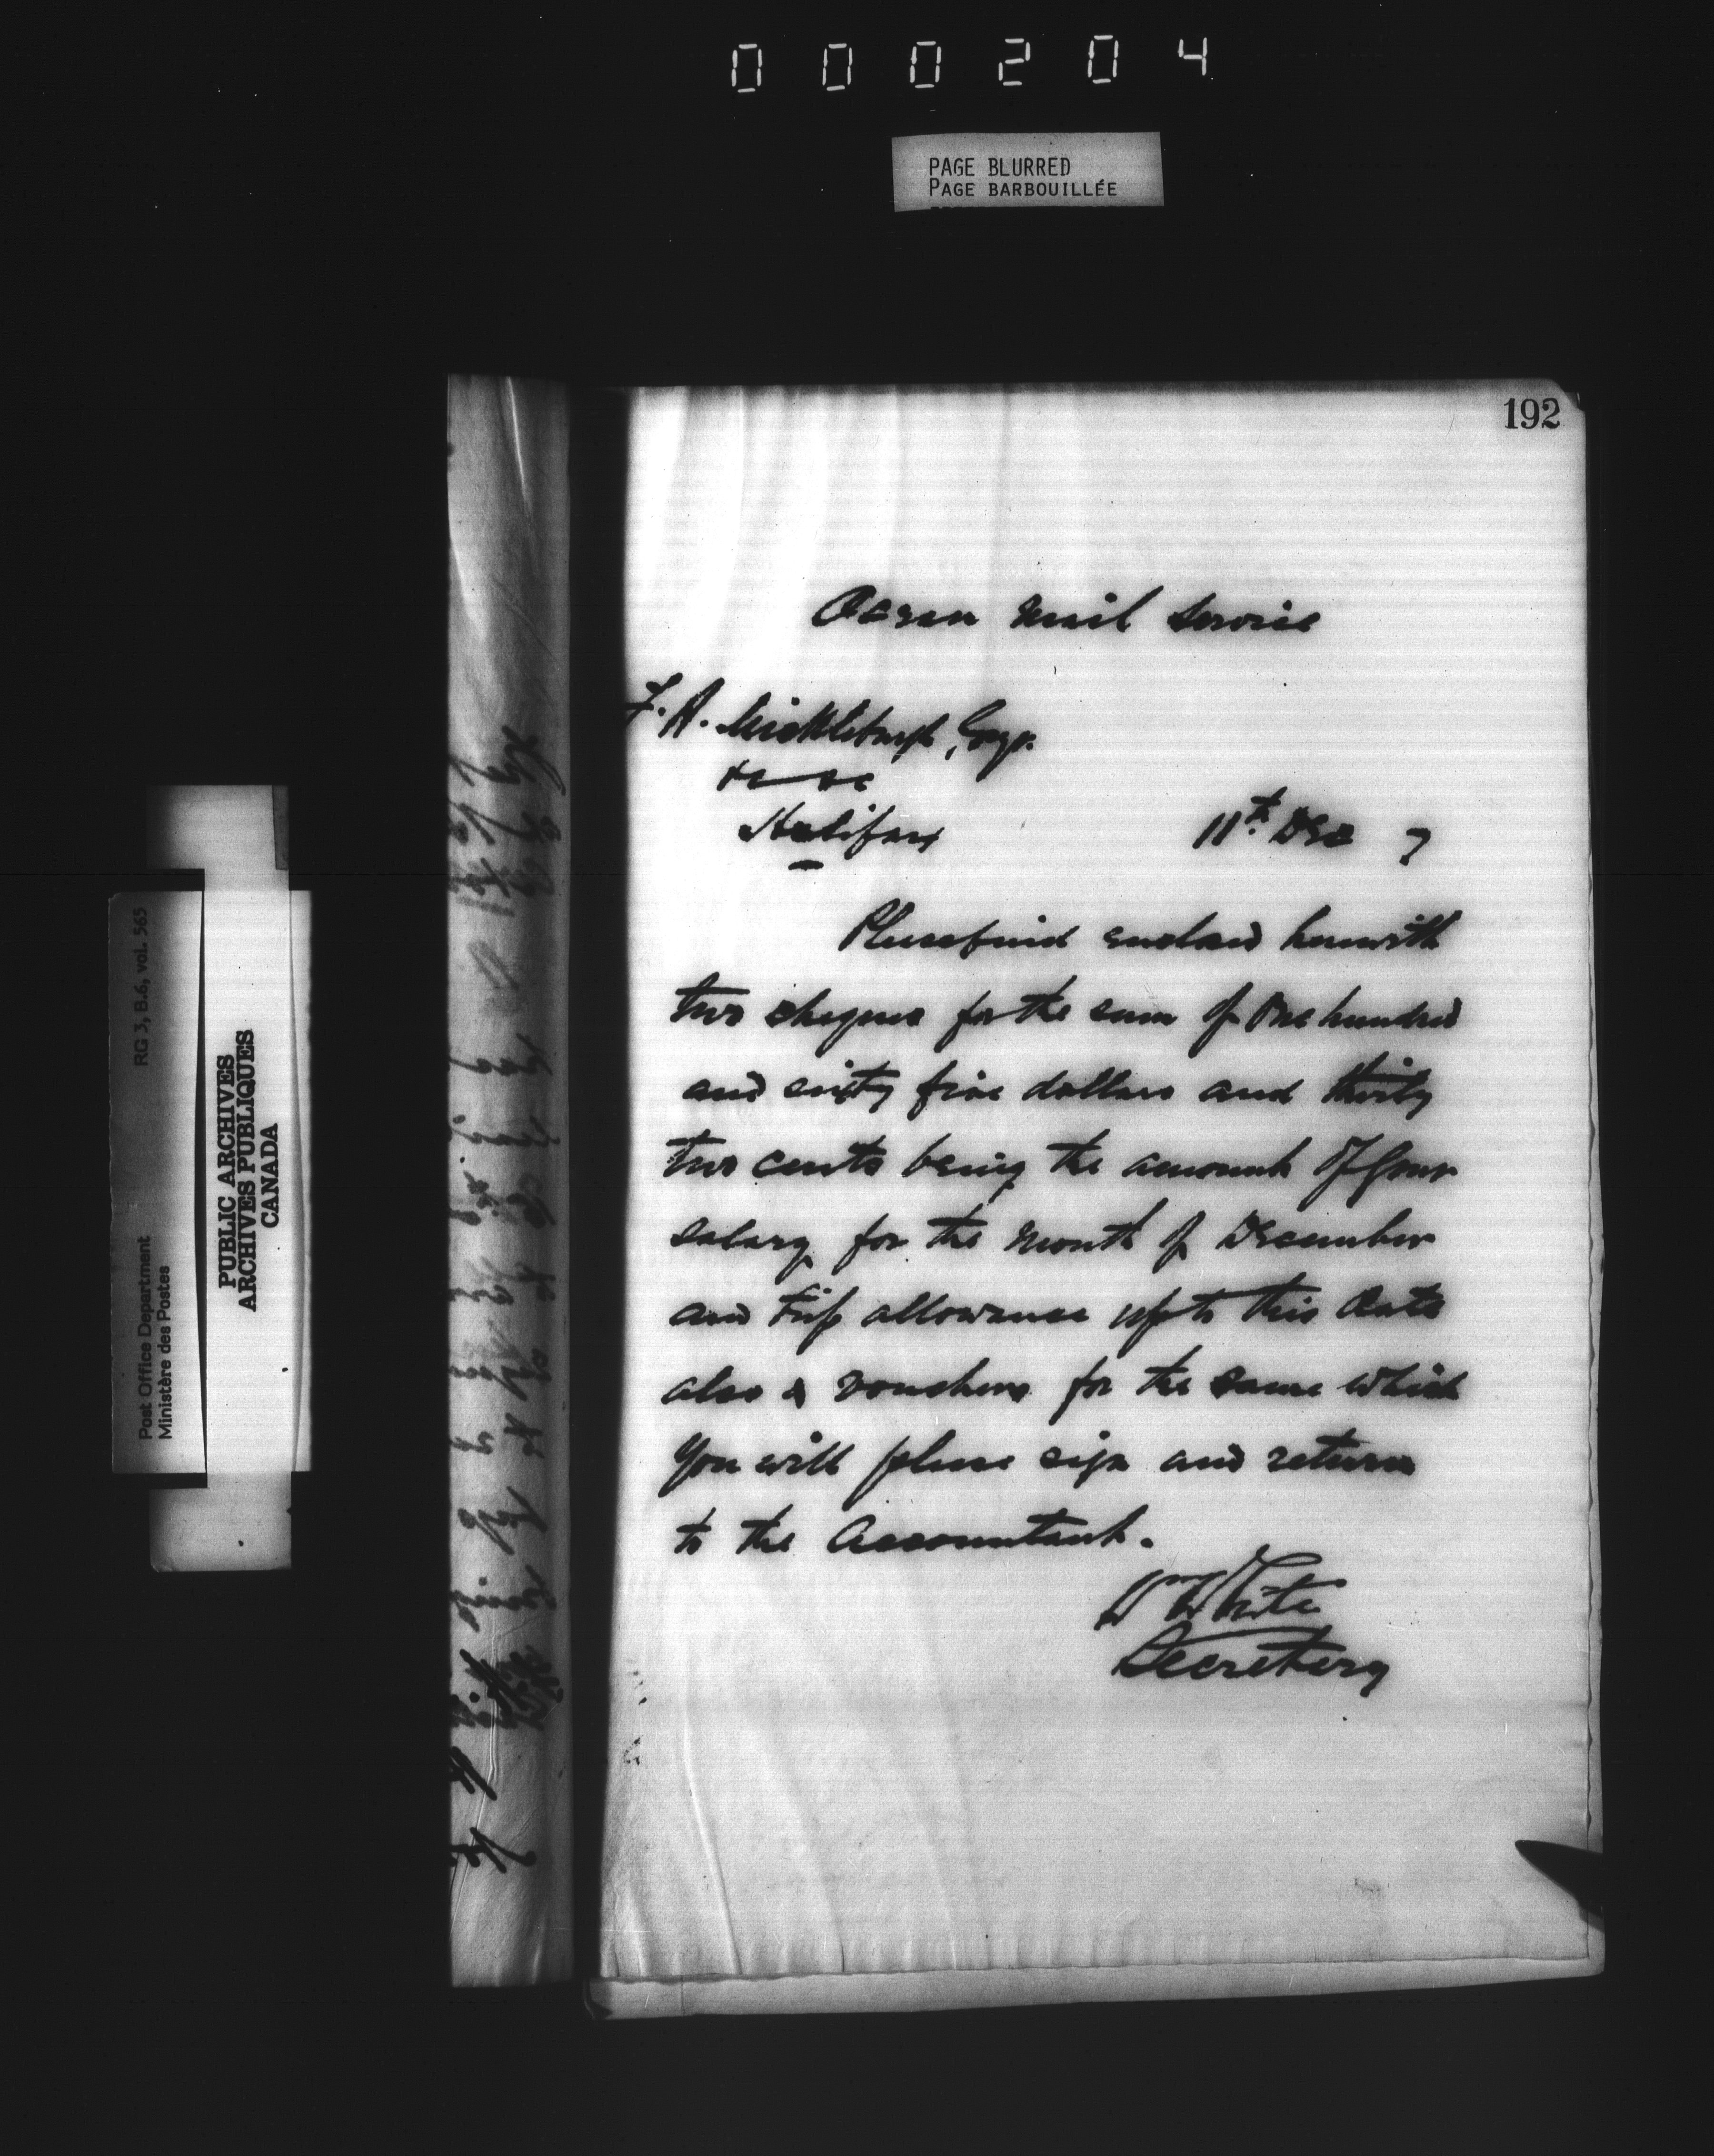 000204
PAGE BLURRED
PAGE BARBOUILLÉE
192
Ocean Mail Service
F. A. Esqr.
&c &c
Halifax 11th Dec 7
Please find enclosed herewith
two cheques for the sum of One hundred
and sixty five dollars and thirty
two cents being the amount of your
salary for the month of December
and Trip allowance up to this date
also vouchers for the same which
you will please sign and return
to the Accountant.
Wm White
Secretary
RG 3, B.6, vol. 565
Post Office Department
Ministère des Postes
PUBLIC ARCHIVES
ARCHIVES PUBLIQUES
CANADA